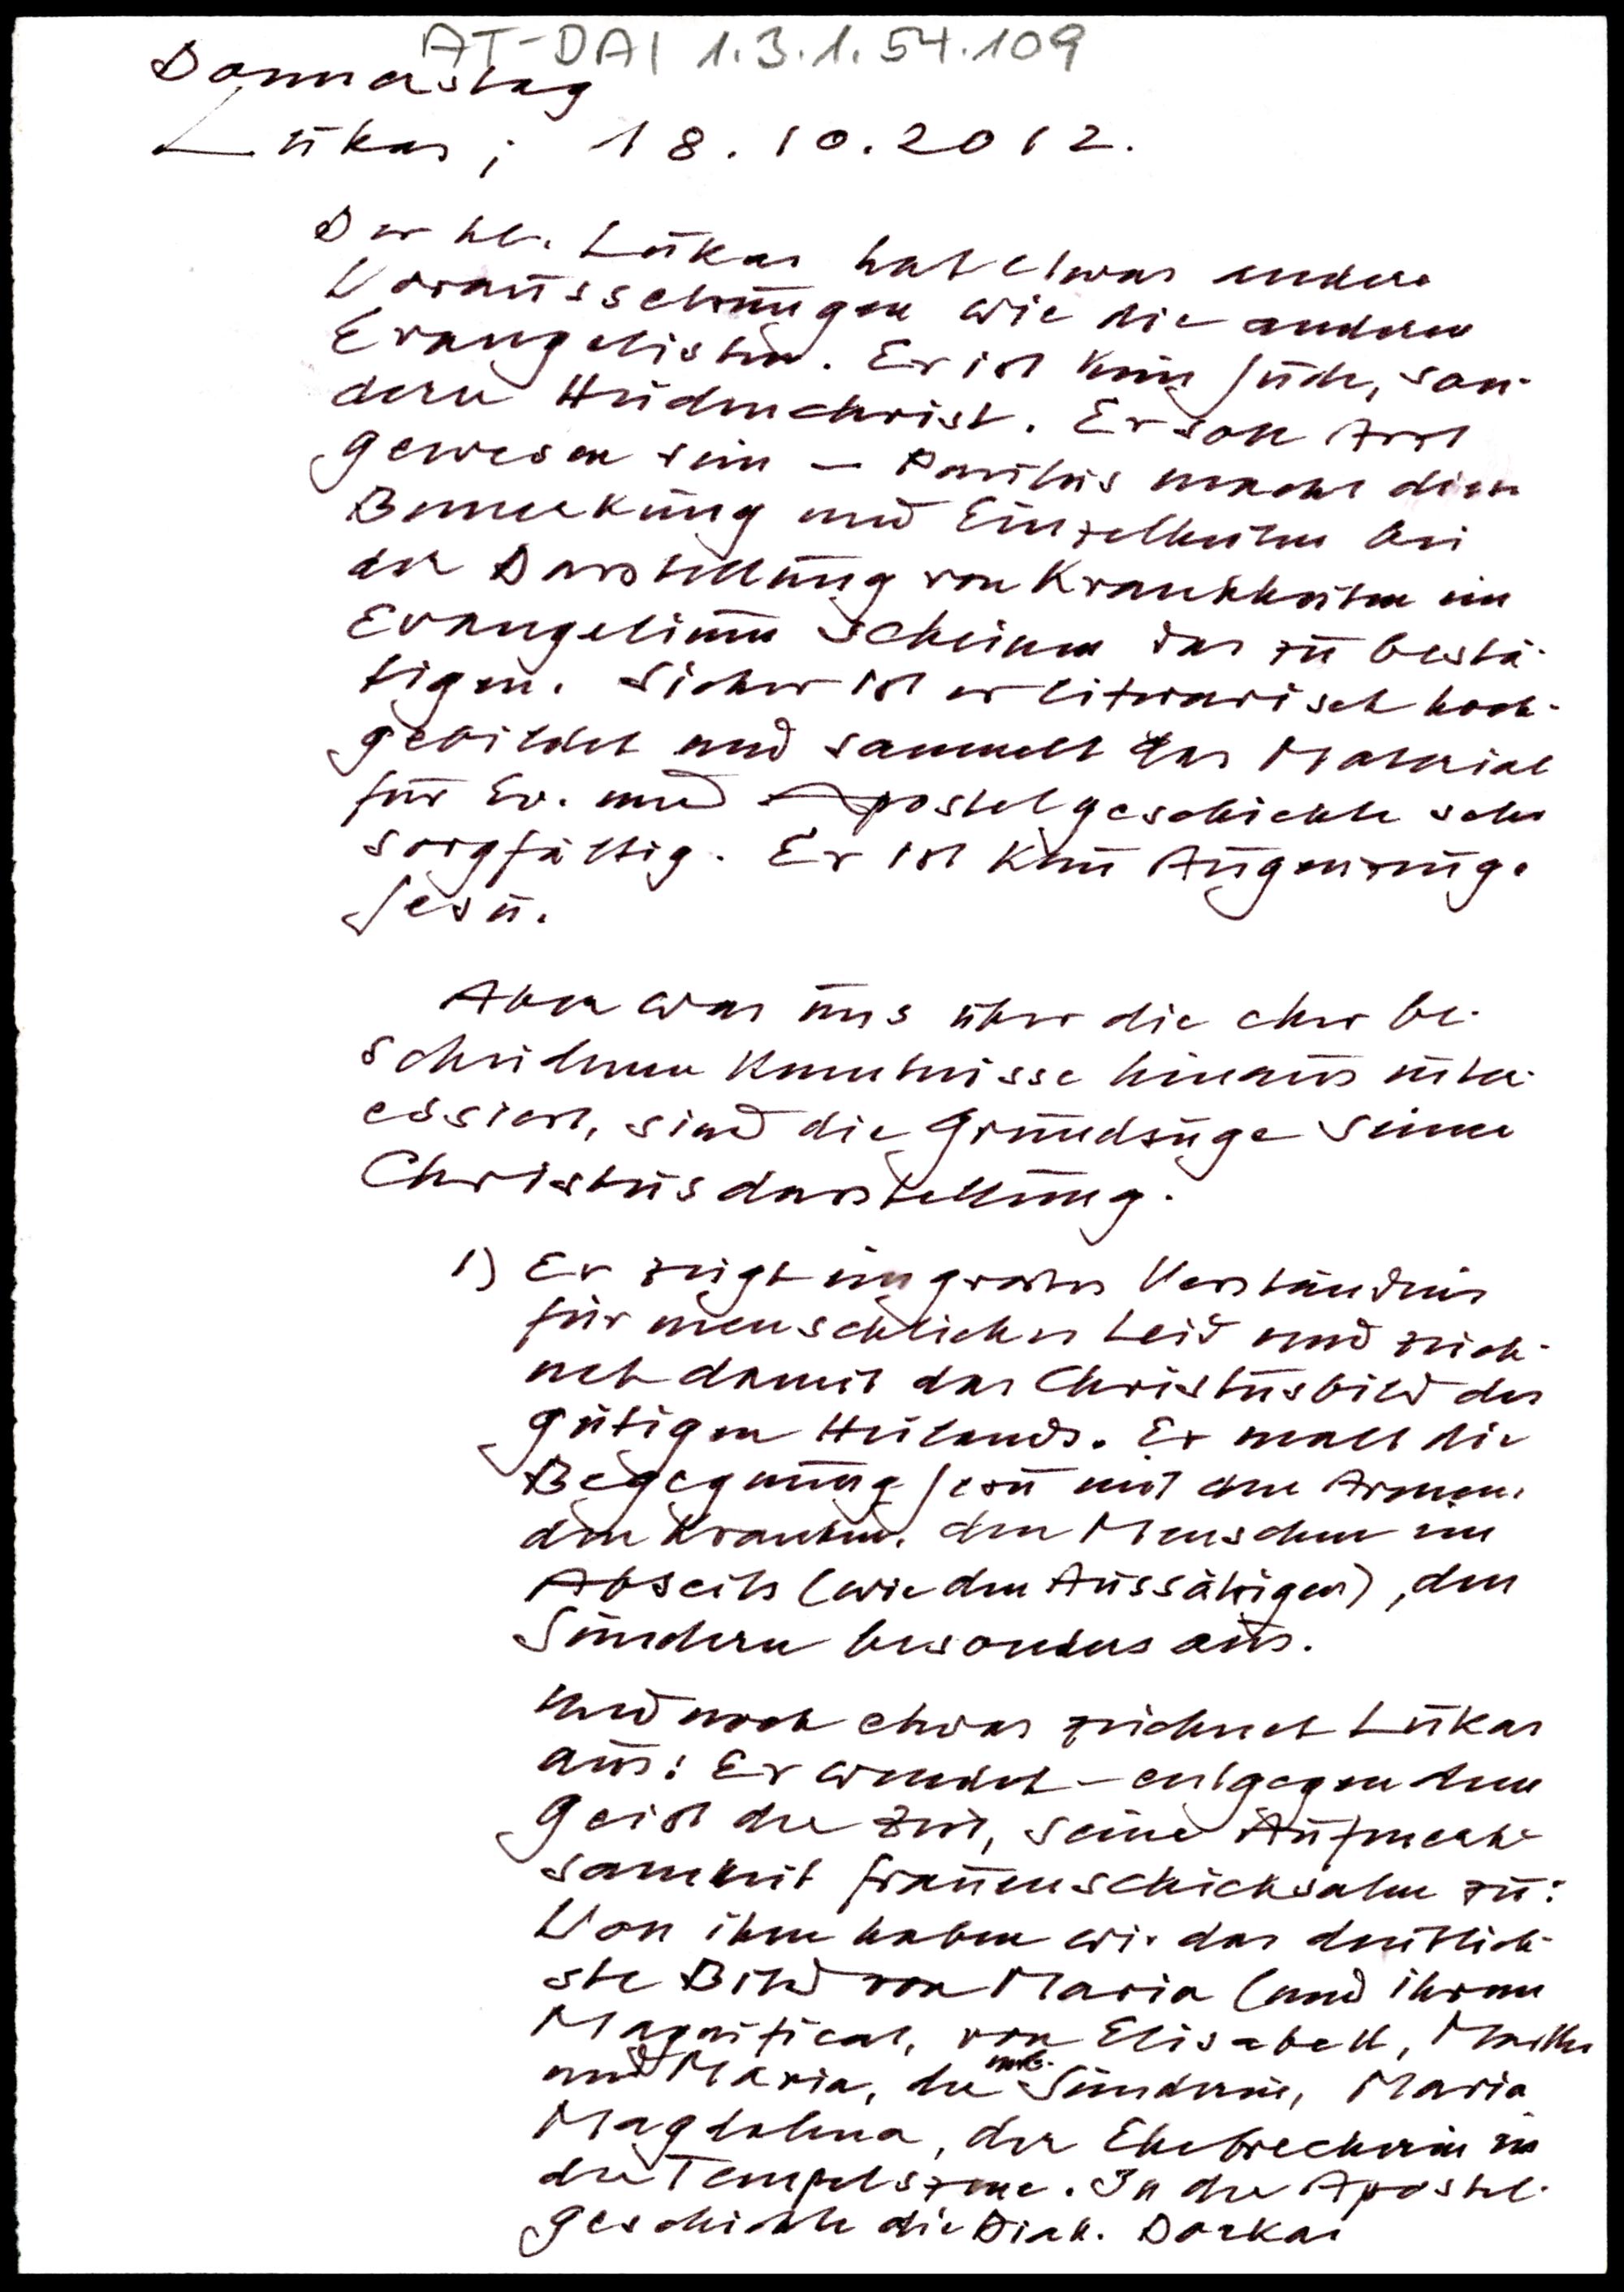 AT-DAI 1.3.1.54.109
Donnerstag
Lukas, 18.10.2012.
Der hl. Lukas hat etwas andere
Voraussetzungen wie die anderen
Evangelisten. Er ist kein Jude, son-
dern Heidenchrist. Er soll Arzt
gewesen sein – Paulus macht diese
Bemerkung und Einzelheiten bei
der Darstellung von Krankheiten im
Evangelium scheinen das zu bestä-
tigen. Sicher ist er literarisch hoch-
gebildet und sammelt das Material
für Ev. und Apostelgeschichte sehr
sorgfältig. Er ist kein Augenzeuge
Jesu.
Aber was uns über die eher be-
scheidenen Kenntnisse hinaus inter-
essiert, sind die Grundzüge seiner
Christusdarstellung.
1) Er zeigt ein großes Verständnis
für menschliches Leid und zeich-
net damit das Christusbild des
gütigen Heilands. Er malt die
Begegnung Jesu mit den Armen,
den Kranken, den Menschen im
Abseits (wie den Aussätzigen), den
Sündern besonders aus.
Und noch etwas zeichnet Lukas
aus: Er wendet – entgegen dem
Geist der Zeit, seine Aufmerk-
samkeit Frauenschicksalen zu:
Von ihm haben wir das deutlich-
ste Bild von Maria (und ihrem
Magnificat, von Elisabeth, Martha
und Maria, der Sünderin, Maria
Magdalena, der Ehebrecherin in
der Tempelszene. In der Apostel-
geschichte die Diak. Dorkas